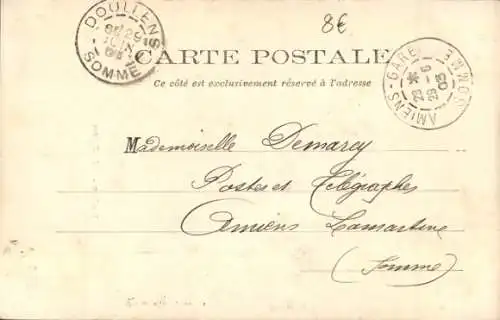 8€
DOULLENS
29
JUIN
SOMME
CARTE POSTALE
Ce côté est exclusivement réservé à l'adresse
AMIENS-GARE
SOMME
23
29-6
03
Mademoiselle Demarcy
Postes et Télégraphes
Amiens Lamartine
(Somme)